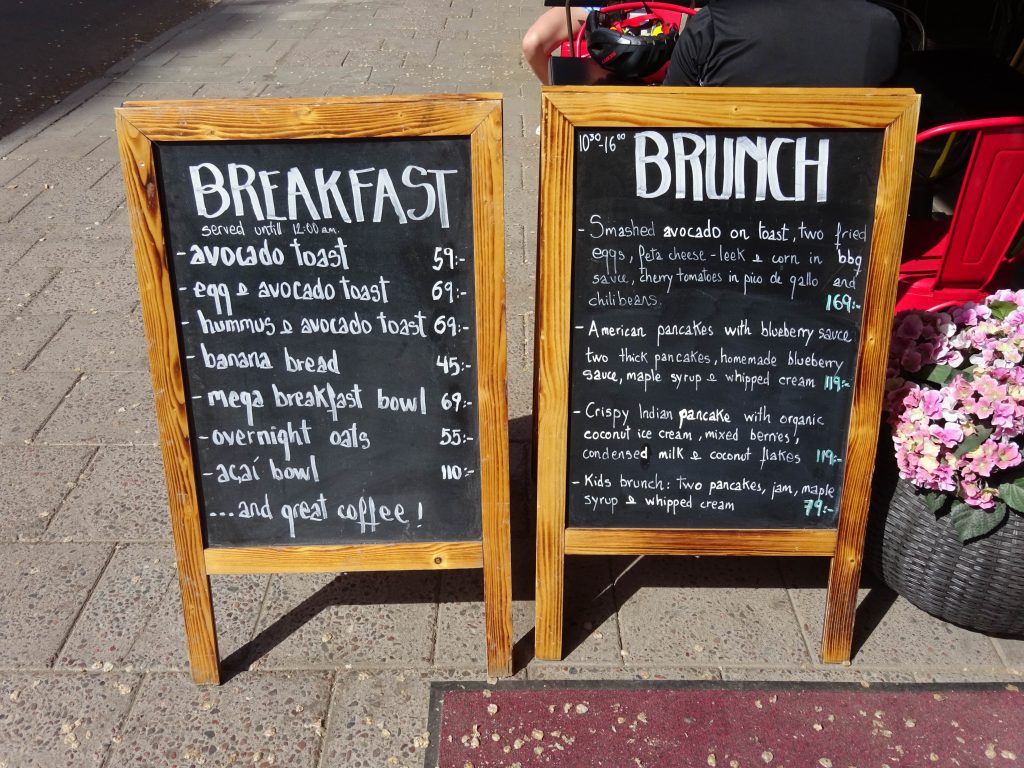 BREAKFAST
served untill 12:00 a.m.
- avocado toast 59:-
- egg & avocado toast 69:-
- hummus & avocado toast 69:-
- banana bread 45:-
- mega breakfast bowl 69:-
- overnight oats 55:-
- açaí bowl 110:-
...and great coffee!
10³⁰-16⁰⁰ BRUNCH
- Smashed avocado on toast, two fried
eggs, feta cheese - leek & corn in bbq
sauce, cherry tomatoes in pico de gallo and
chilibeans. 169:-
- American pancakes with blueberry sauce
two thick pancakes, homemade blueberry
sauce, maple syrup & whipped cream 119:-
- Crispy Indian pancake with organic
coconut ice cream, mixed berries,
condensed milk & coconut flakes 119:-
- Kids brunch: two pancakes, jam, maple
syrup & whipped cream 79:-